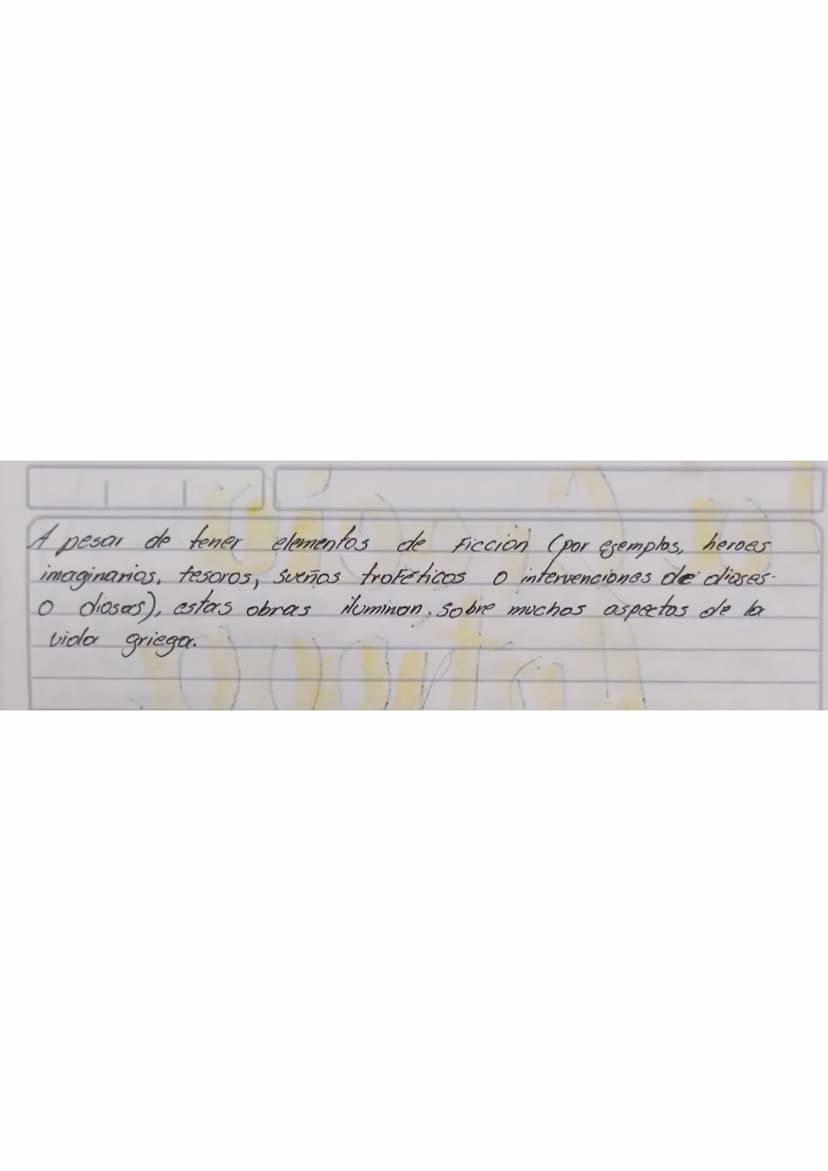 A pesar de tener elementos de Ficción (por ejemplos, heroes
imaginarios, tesoros, sueños troféticos o intervenciones de dioses.
o diosas), estas obras iluminan, sobre muchos aspectos de la
vida griega.